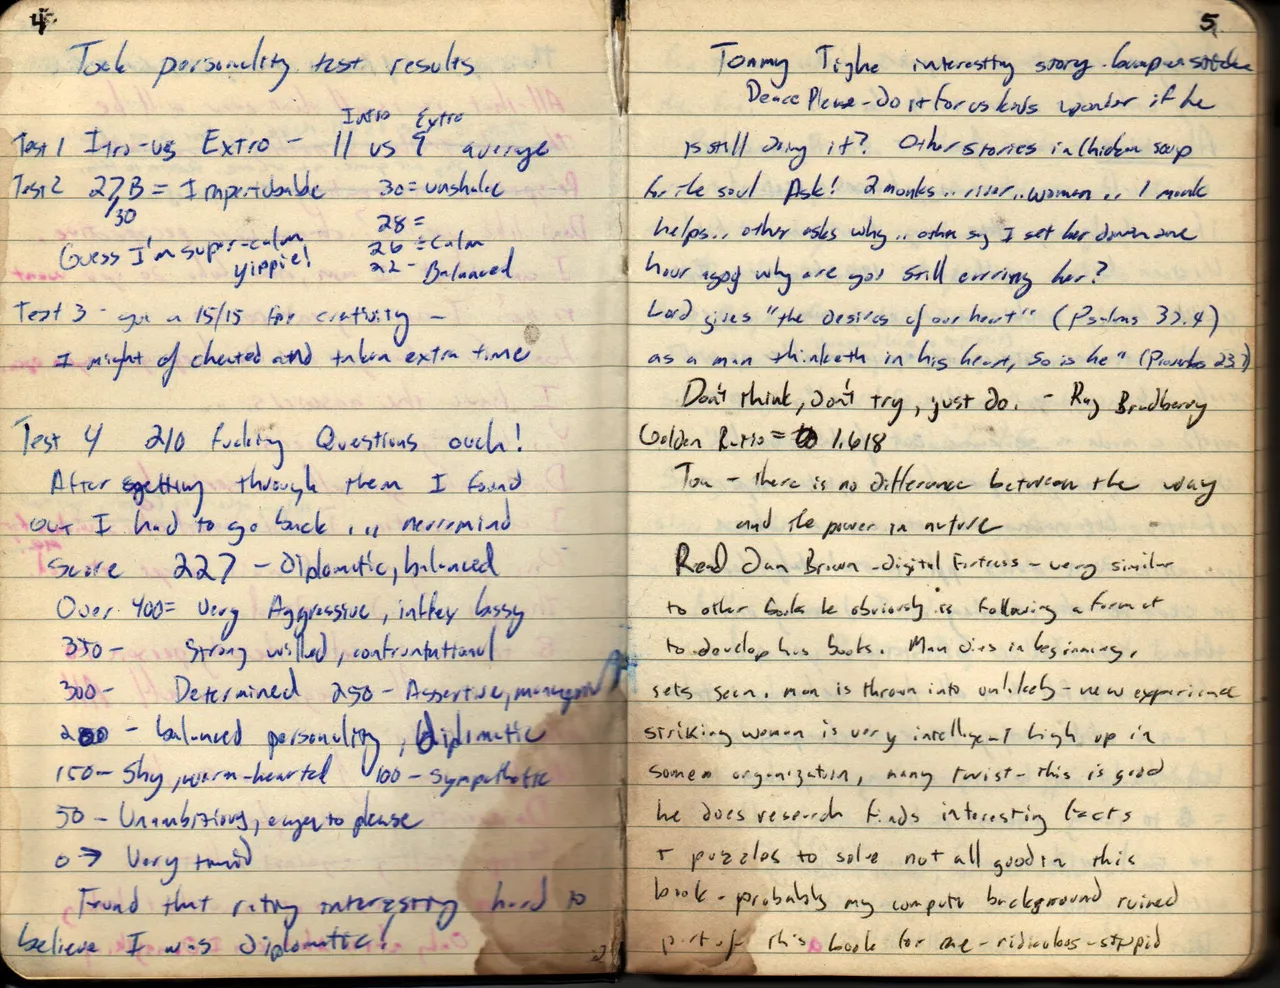 4
Took personality test results
Intro Extro
Test 1 Itro-vs Extro - 11 vs 9 average
Test 2 27,B = Impertubable 30 = unshake
/30 28 =
Guess I'm super-calm 26 = Calm
yippie! 22 - Balanced
Test 3 - got a 15/15 for crativity -
I might of cheated and taken extra time
Test 4 210 fucking Questions ouch!
After getting through them I found
out I had to go back ... nevermind
Score 227 - Diplomatic, balanced
Over 400 = Very Aggressive, bossy
350 - Strong willed, confrontational
300 - Determined 250 - Assertive,
200 - balanced personality, diplomatic
150 - Shy, warm-hearted 100 - Sympathetic
50 - Unambitious, eager to please
0 → Very timid
Found that rating interesting hard to
believe I was Diplomatic!
5
Tommy Tighe interesting story bumper sticker
Peace Please - do it for us kids wonder if he
is still doing it? Other stories in Chicken soup
for the soul Ask! 2 monks .. river .. women .. 1 monk
helps .. other asks why .. other say I set her down one
hour ago why are you still carring her?
Lord gives "the desires of our heart" (Psalms 37.4)
as a man thinketh in his heart, so is he" (Proverbs 23.7)
Don't think, don't try, just do. - Ray Bradberry
Golden Ratio = 1.618
Tou - there is no difference between the way
and the power in nature
Read Dan Brown - Digital Fortress - very similar
to other books he obviously is following a format
to develop his books. Man dies in beginning,
sets seen, man is thrown into unlikely - new experience
striking woman is very intelligent high up in
some organization, many twist - this is good
he does research finds interesting facts
+ puzzles to solve not all good in this
book - probably my computer background ruined
part of this book for me - ridiculous - stupid